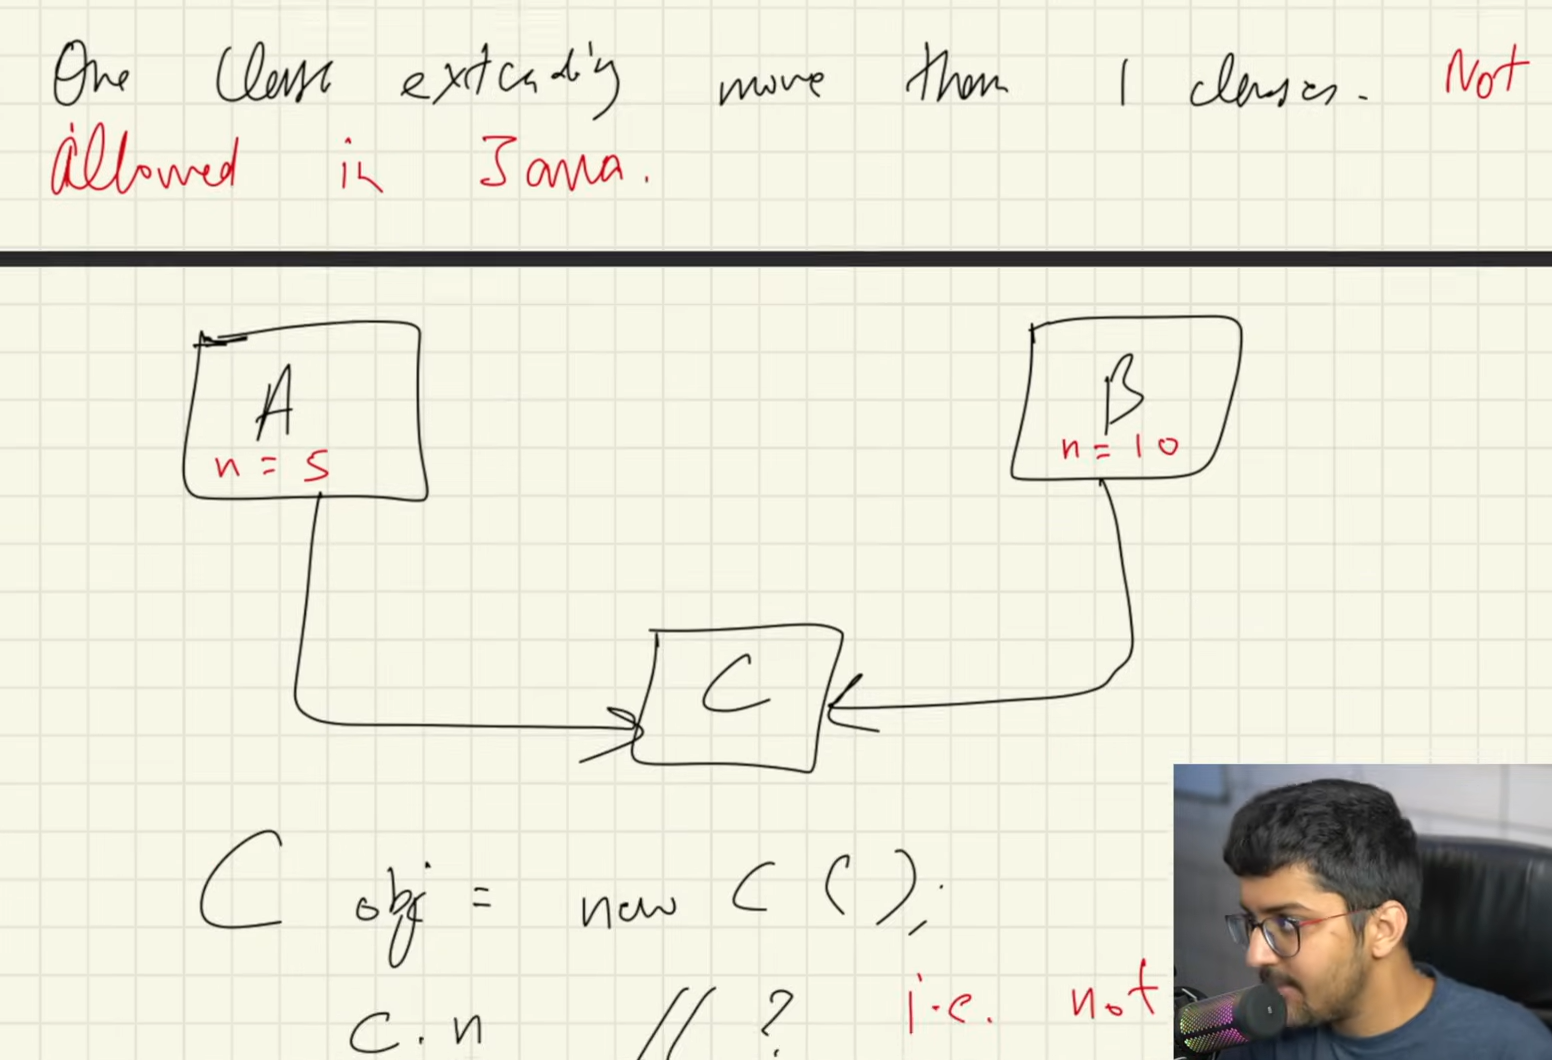 One class extending more than 1 classes. Not
allowed in Java.
A
n = 5
B
n = 10
C
C obj = new C();
C.n // ? i.e. not